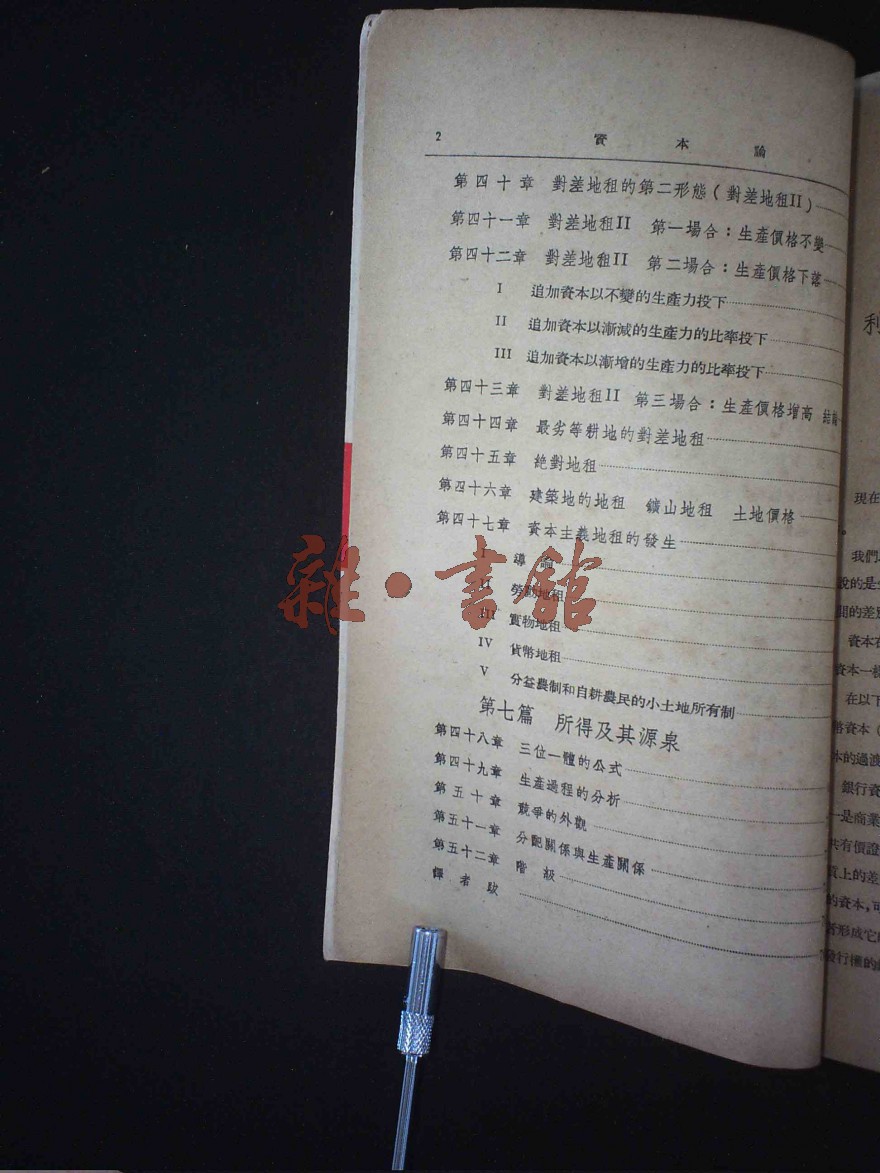 2 資本論
第四十章 對差地租的第二形態(對差地租II)
第四十一章 對差地租II 第一場合:生產價格不變
第四十二章 對差地租II 第二場合:生產價格下落
I 追加資本以不變的生產力投下
II 追加資本以漸減的生產力的比率投下
III 追加資本以漸增的生產力的比率投下
第四十三章 對差地租II 第三場合:生產價格增高 結論
第四十四章 最劣等耕地的對差地租
第四十五章 絶對地租
第四十六章 建築地的地租 鑛山地租 土地價格
第四十七章 資本主義地租的發生
I 導論
II 勞動地租
III 實物地租
IV 貨幣地租
V 分益農制和自耕農民的小土地所有制
第七篇 所得及其源泉
第四十八章 三位一體的公式
第四十九章 生產過程的分析
第五十章 競爭的外觀
第五十一章 分配關係與生產關係
第五十二章 階級
譯者跋
雜·書舘
利
現在
我們
說的是
資本在
資本一
在以下
幣資本(
本的過渡
銀行資
一是商業
共有價證
質上的差
的資本,可
者形成它
發行權的